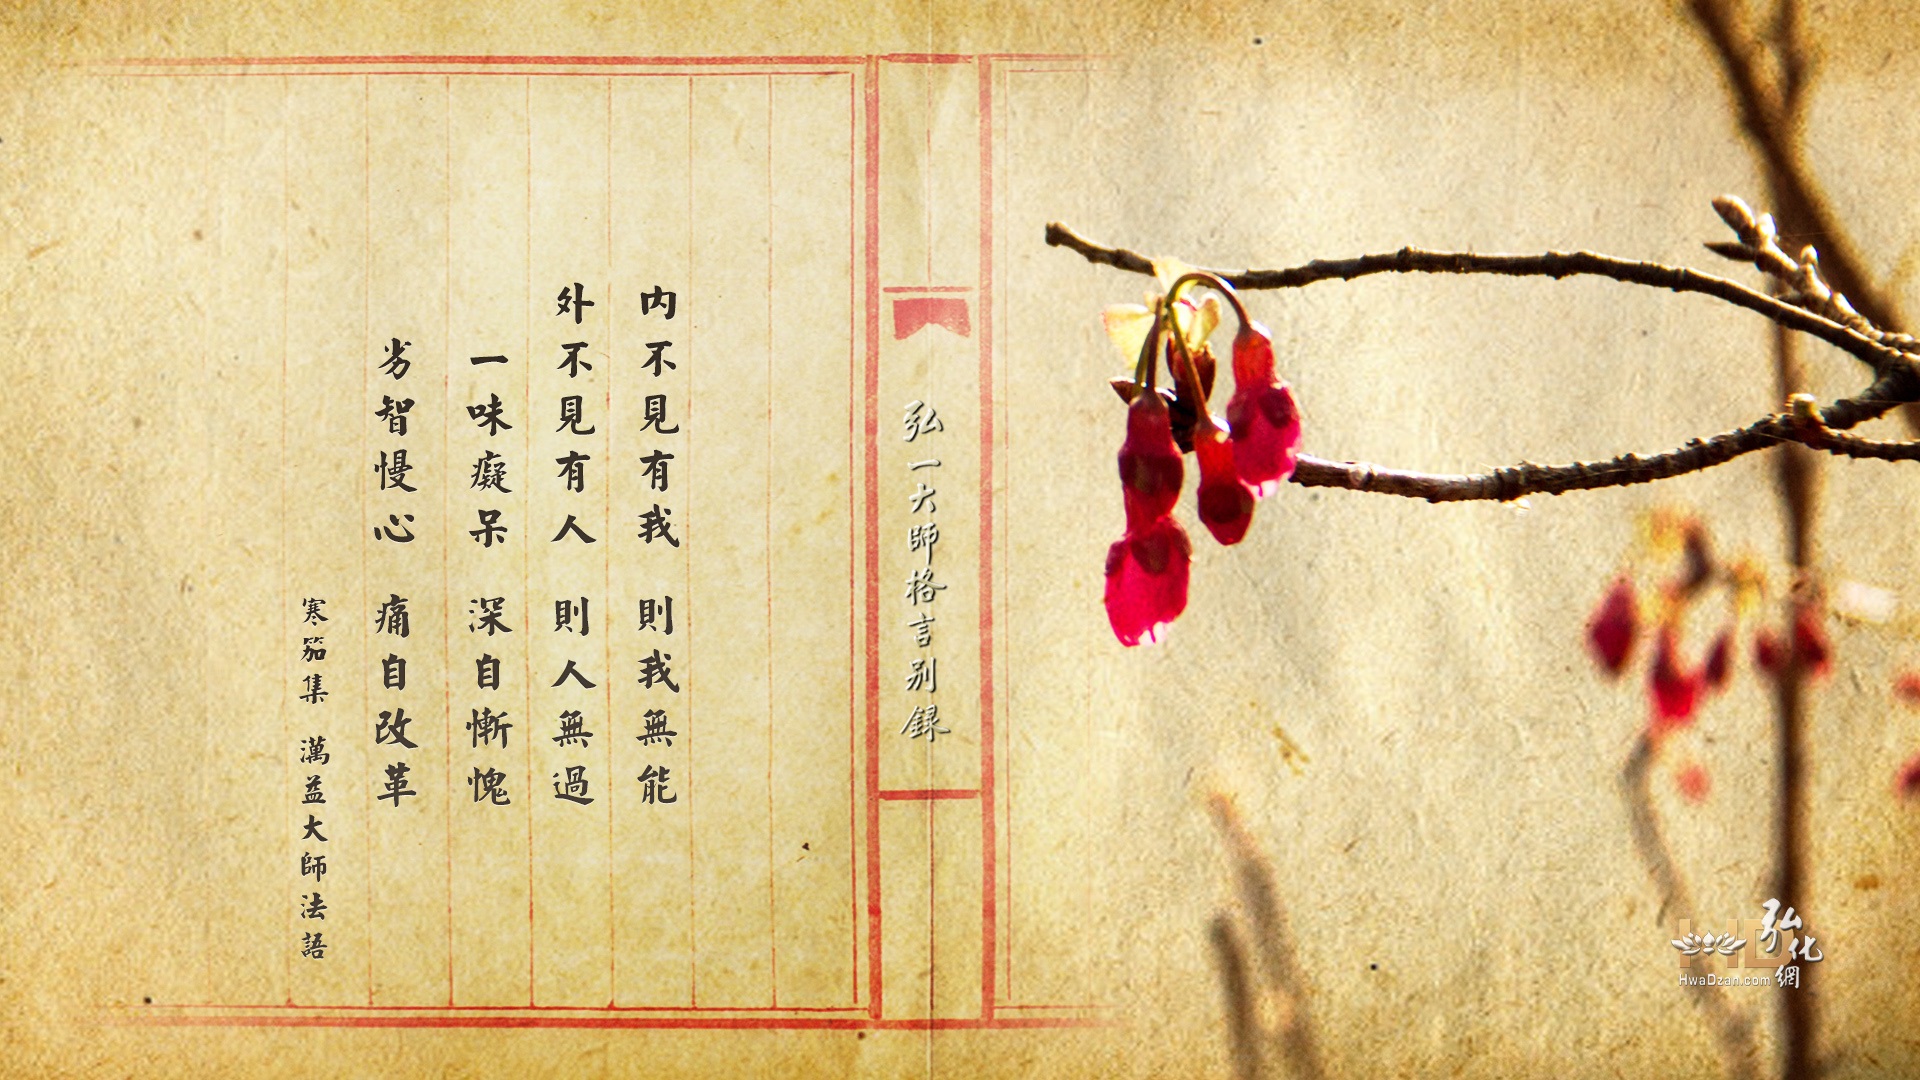 内不見有我 則我無能
外不見有人 則人無過
一味癡呆 深自慚愧
劣智慢心 痛自改革
寒笳集 澫益大師法語
弘一大師格言別録
弘化網
HwaDzan.com
HD